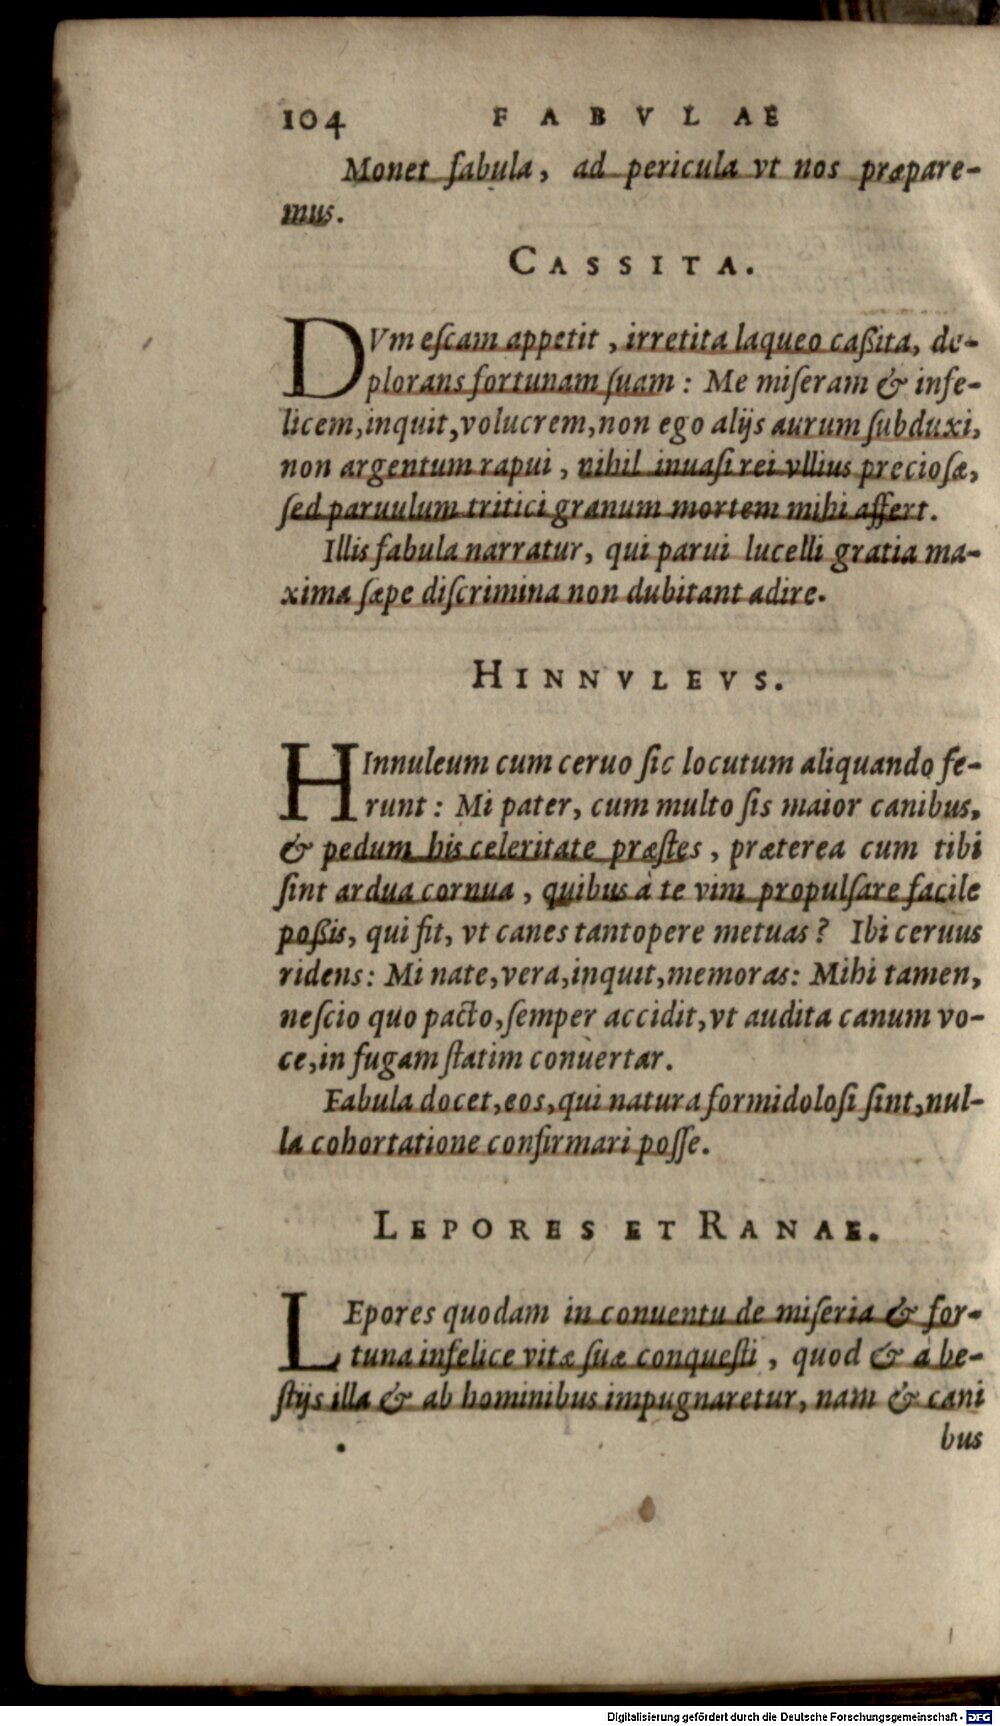 104 FABVLAE
Monet fabula, ad pericula vt nos præpare-
mus.
CASSITA.
DVm eſcam appetit, irretita laqueo caßita, de-
plorans fortunam ſuam: Me miſeram & infe-
licem, inquit, volucrem, non ego alijs aurum ſubduxi,
non argentum rapui, nihil inuaſi rei vllius precioſæ,
ſed paruulum tritici granum mortem mihi affert.
Illis fabula narratur, qui parui lucelli gratia ma-
xima ſæpe diſcrimina non dubitant adire.
HINNVLEVS.
HInnuleum cum ceruo ſic locutum aliquando fe-
runt: Mi pater, cum multo ſis maior canibus,
& pedum his celeritate præſtes, præterea cum tibi
ſint ardua cornua, quibus à te vim propulſare facile
poßis, qui fit, vt canes tantopere metuas? Ibi ceruus
ridens: Mi nate, vera, inquit, memoras: Mihi tamen,
neſcio quo pacto, ſemper accidit, vt audita canum vo-
ce, in fugam ſtatim conuertar.
Fabula docet, eos, qui natura formidoloſi ſint, nul-
la cohortatione confirmari poſſe.
LEPORES ET RANAE.
LEpores quodam in conuentu de miſeria & for-
tuna infelice vitæ ſuæ conqueſti, quod & à be-
ſtijs illa & ab hominibus impugnaretur, nam & cani
bus
Digitalisierung gefördert durch die Deutsche Forschungsgemeinschaft - DFG